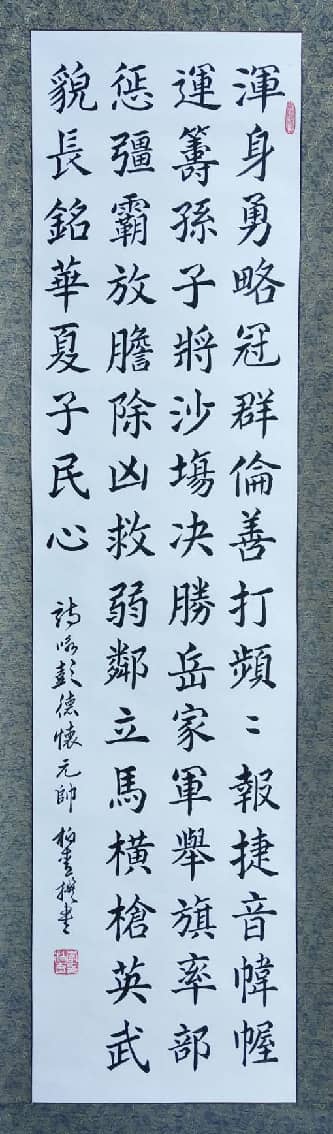 渾身勇略冠群倫善打頻〻報捷音幃幄
運籌孫子將沙場決勝岳家軍舉旗率部
惩彊霸放膽除凶救弱鄰立馬橫槍英武
貌長銘華夏子民心
詩咏彭德懷元帥 撰书